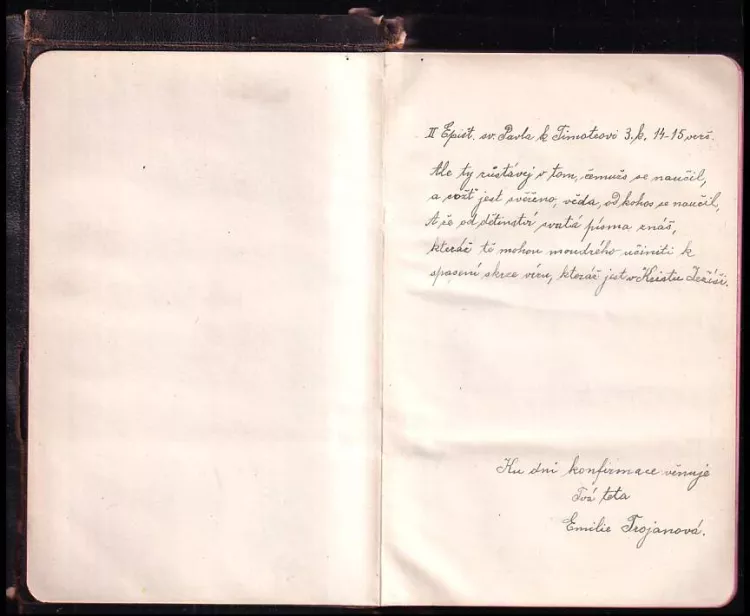 II Epist. sv. Pavla k Timoteovi 3. k. 14-15 verš.
Ale ty zůstávej v tom, čemužs se naučil,
a cožť jest svěřeno, věda, od kohos se naučil,
A že od dětinství svatá písma znáš,
kteráž tě mohou moudrého učiniti k
spasení skrze víru, kteráž jest v Kristu Ježíši.
Ku dni konfirmace věnuje
Tvá teta
Emilie Trojanová.